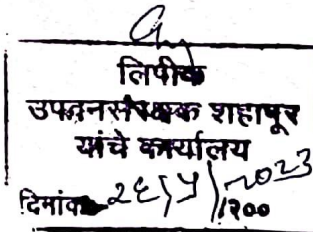 लिपीक
उपवनसंरक्षक शहापूर
यांचे कार्यालय
दिनांक २६/५/२०२३ /१२००